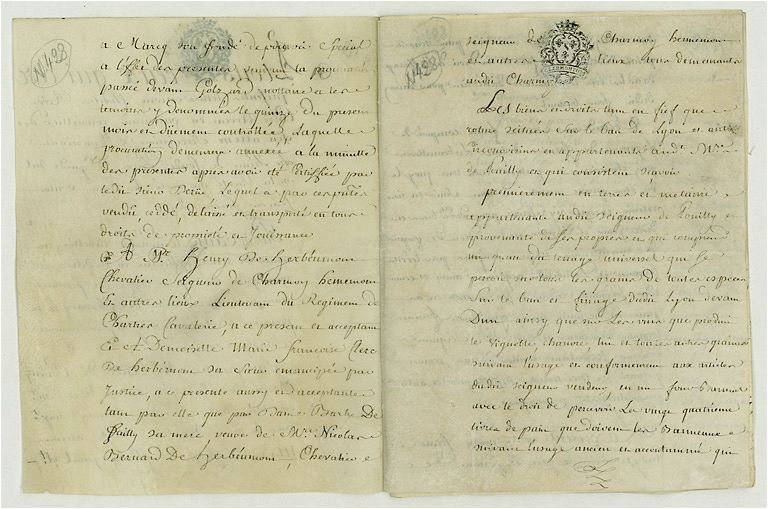 N.428
a Marcq son fondé de pouvoir special
a l'effet des presentes suivant la procuration
passée devant notaire et les
temoins y denommés le quinze du present
mois et düement controllée, laquelle
procuration demeure annexée a la minutte
des presentes apres avoir été certiffiée par
ledit sieur lequel a par ces presentes
vendu, ceddé, delaissé et transporté en tous
droits de proprieté et Jouissance
A Mre Henry De Herbéumont
Chevalier Seigneur de Charmoy hememont
& autres lieux Lieutenant du Regiment de
Chartres Cavalerie, a ce present et acceptant
Et A Demoiselle Marie françoise
De herbémont Sa Soeur emancipée par
Justice, a ce presente aussy et acceptante
tant par elle que par Dame Barbe De
Pouilly Sa mere veuve de Mre Nicolas
Bernard De Herbéumont, Chevalier
N.428
seigneur de Charmoy hememont
et autres lieux demeurante
audit Charmoy
Les biens et droits tant en fief que
roture scitués sur le ban de Lyon et
circonvoisins et appartenants audt Mre
de Pouilly et qui consistent scavoir
premierement en terres et
appartenante audit Seigneur de Pouilly et
provenants de ses propres et qui
un quart du terrage universel qui se
percoit sur tous les grains de toutes especes
Sur le ban et finage dudit Lyon devant
Dun ainsy que sur Les vins que produit
le vignoble et toutes autres grains
suivant l'usage et conformement aux articles
dudit seigneur vendeur, en un four Bannal
avec le droit de percevoir La vingt quatrieme
livres de pain que doivent les Banneaux
suivant l'usage ancien et accoutumé qui